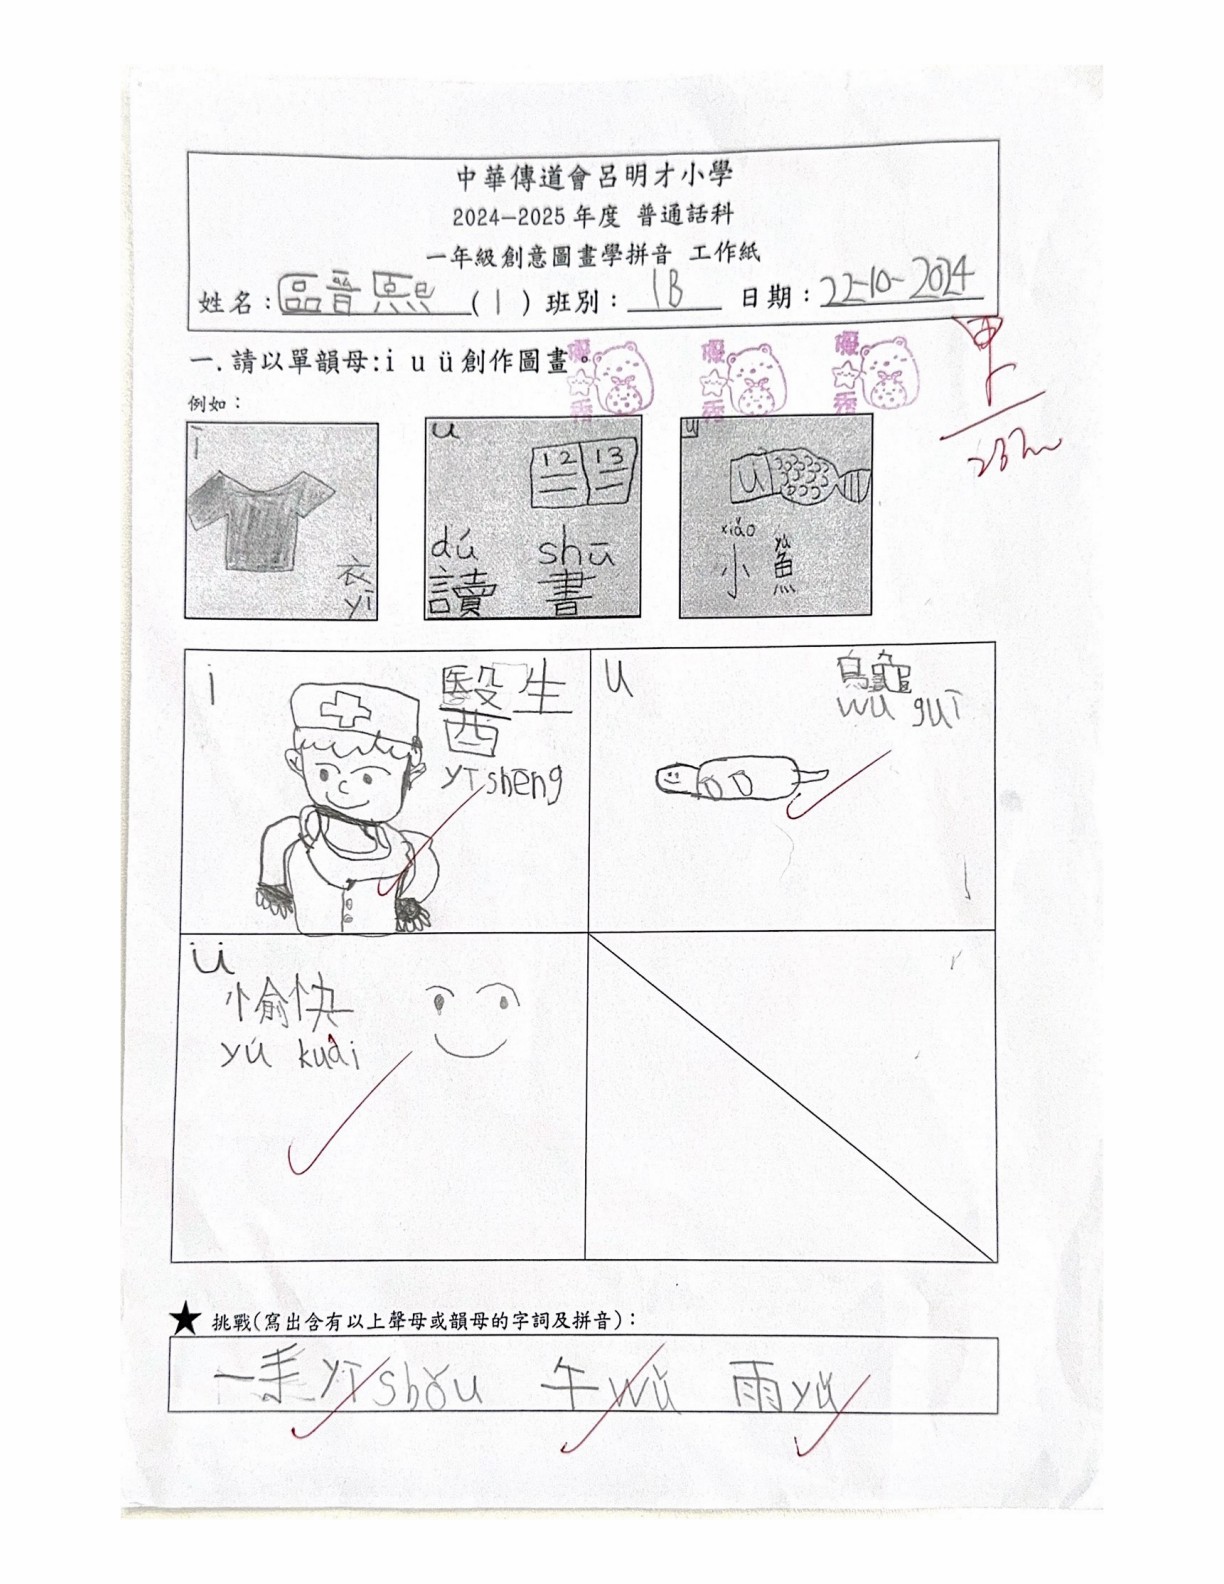 中華傳道會呂明才小學
2024-2025年度 普通話科
一年級創意圖畫學拼音 工作紙
姓名：區晉熙(1) 班別：1B 日期：22-10-2024
一.請以單韻母:i u ü創作圖畫。
優秀 優秀 優秀
甲
例如：
i
衣
yī
u
12 13
dú shū
讀 書
ü
ü
xiǎo yú
小 魚
i
醫生
yī shēng
u
烏龜
wū guī
ü
愉快
yú kuài
★ 挑戰(寫出含有以上聲母或韻母的字詞及拼音)：
一手 yī shǒu 午 wǔ 雨 yǔ